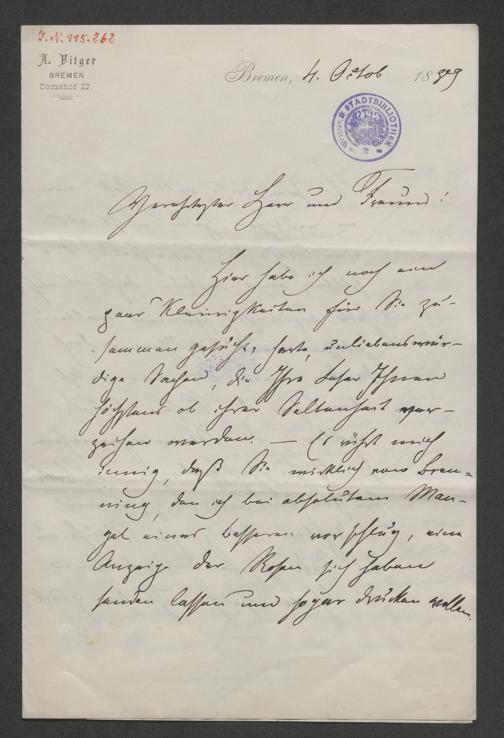 J. N. 115.262
A. Fitger
BREMEN
Domshof 27.
Bremen, 4. Octob 1889
WIENER STADTBIBLIOTHEK
Verehrtester Herr und Freund!
Hier habe ich noch ein
paar Kleinigkeiten für Sie zu-
sammen gesucht, harte, unliebenswür-
dige Sachen, die Ihre Leser Ihnen
höchstens ob ihrer Seltenheit ver-
zeihen werden. — Es rührt mich
innig, daß Sie wirklich von Bren-
ning, den ich bei absolutem Man-
gel eines besseren vorschlug, eine
Anzeige der Rosen sich haben
senden lassen und sogar drucken wollen.